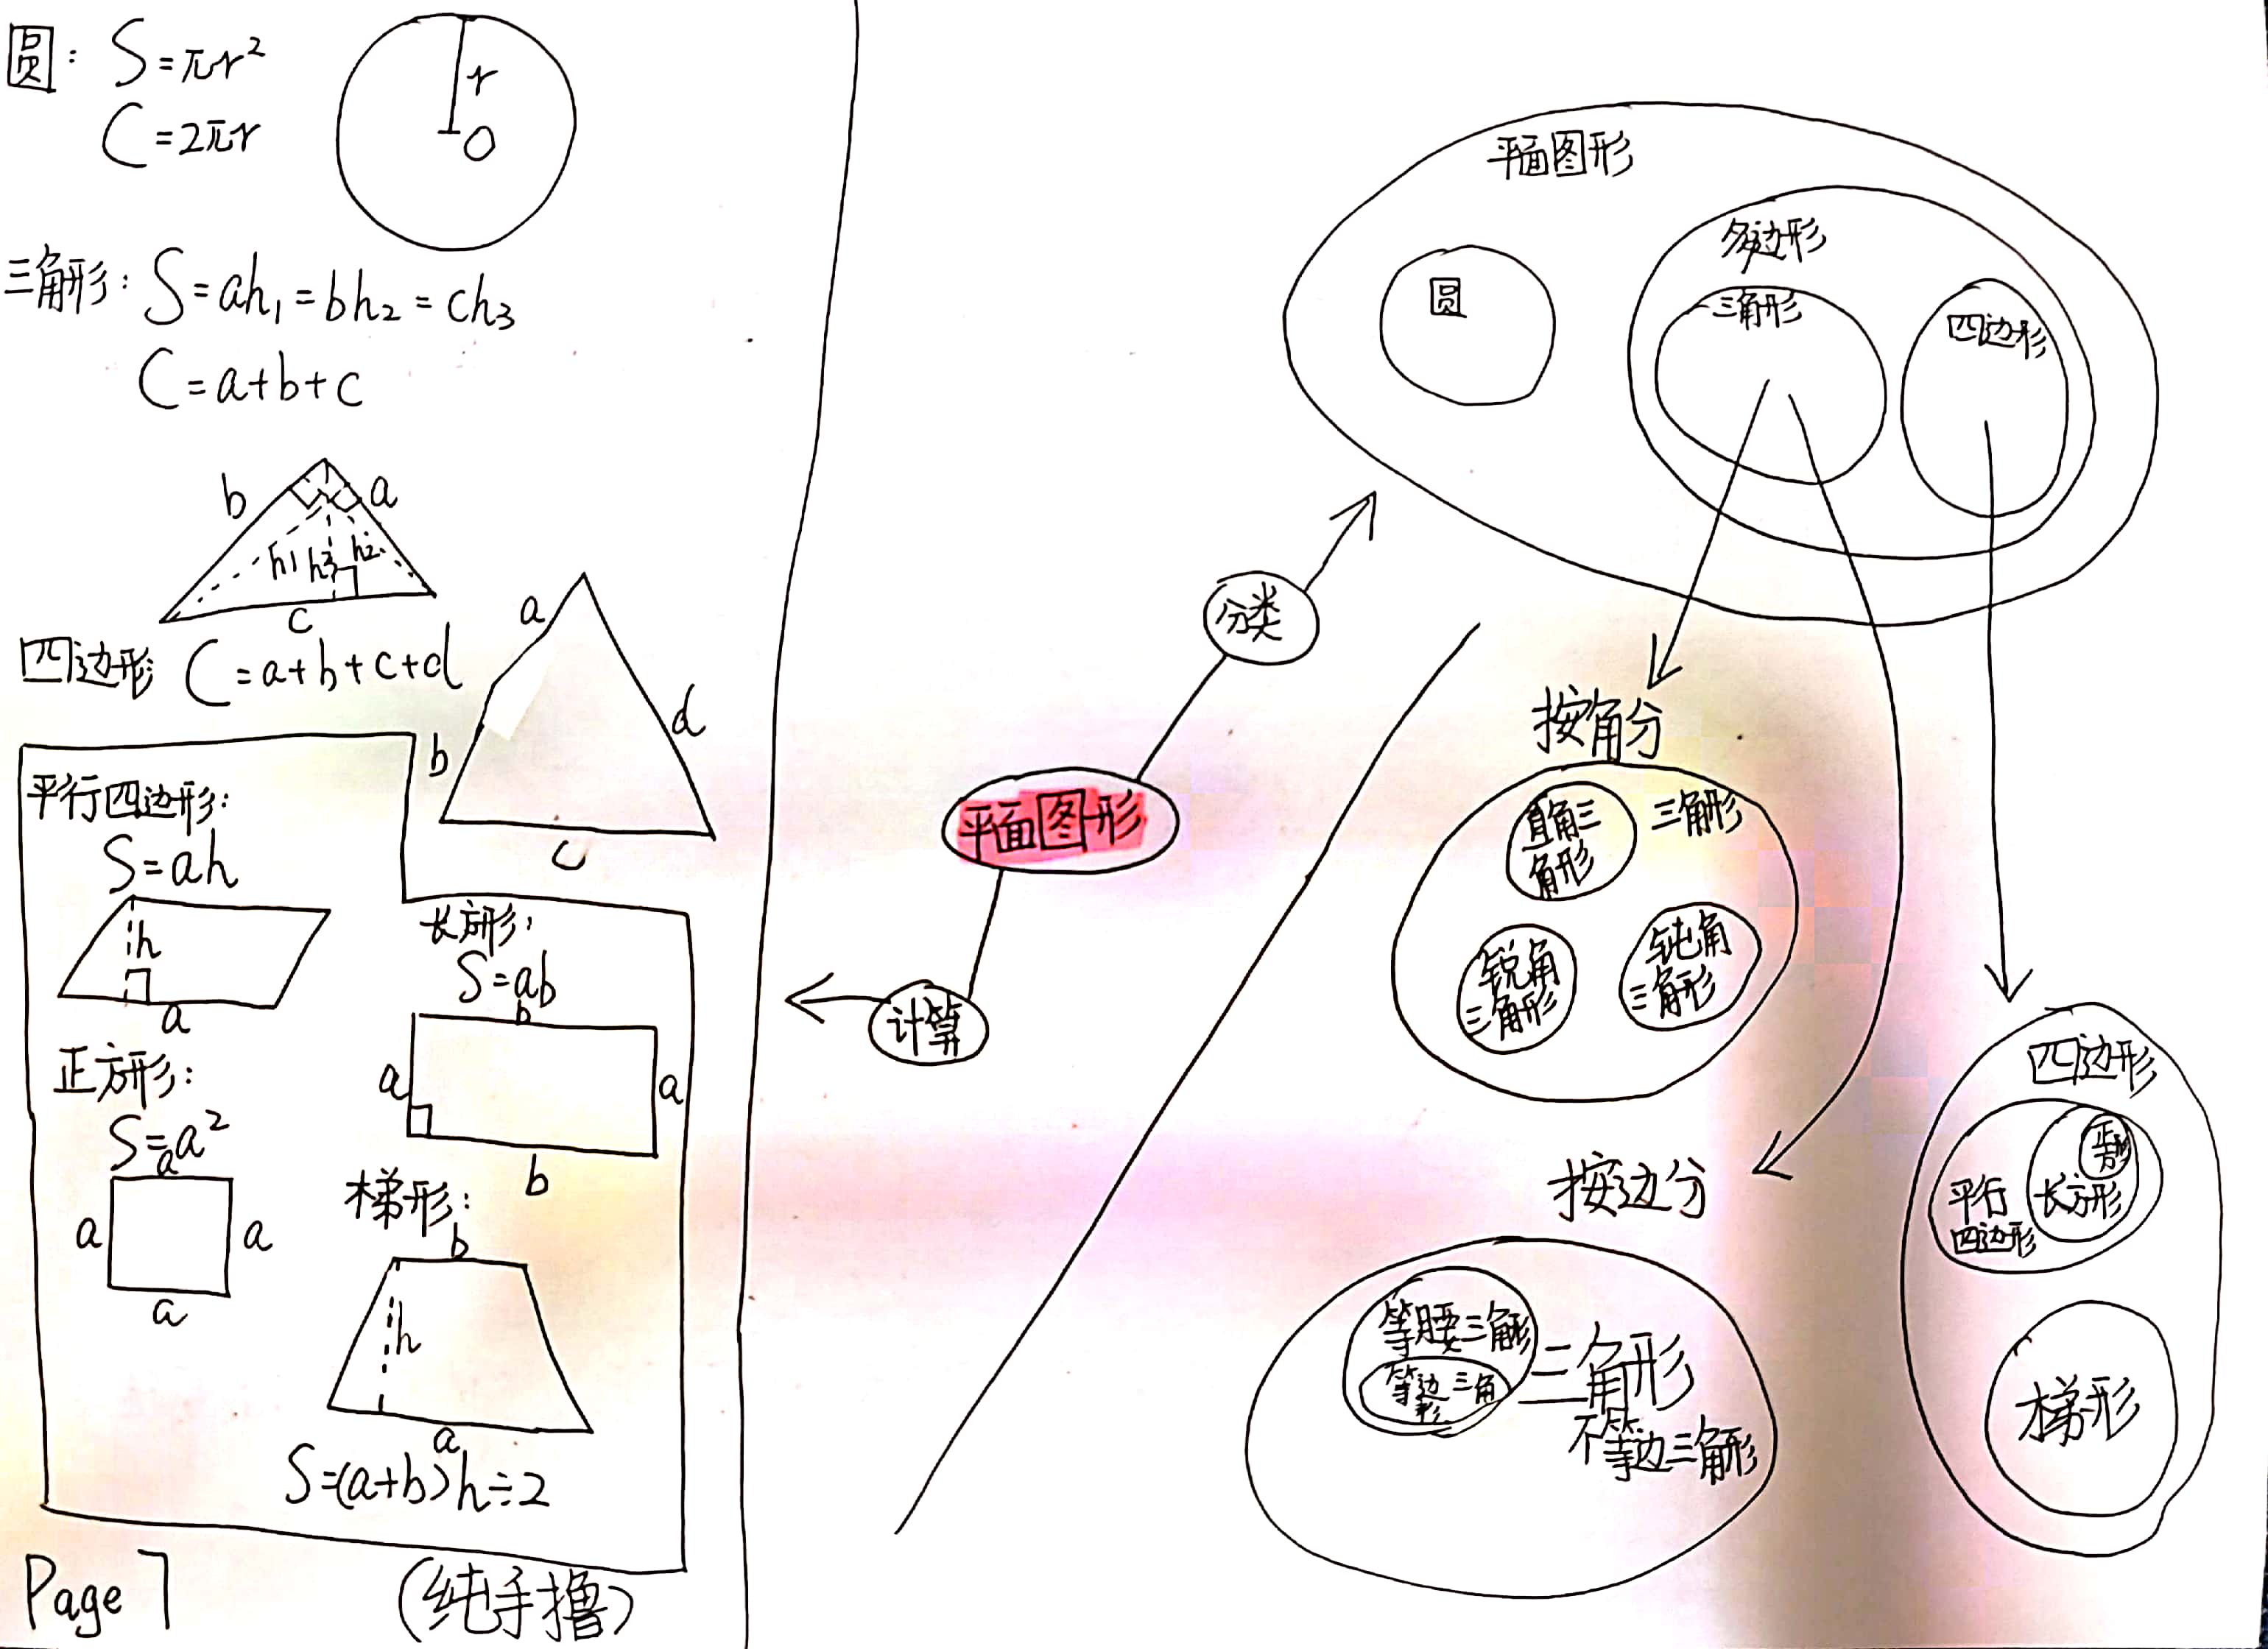 圆: S=πr²
C=2πr
r
O
三角形: S=ah₁=bh₂=ch₃
C=a+b+c
b
a
h1
h3
h2
c
四边形 C=a+b+c+d
a
b
d
c
平行四边形:
S=ah
h
a
正方形:
S=a²
a
a
a
a
长方形:
S=ab
b
a
a
b
梯形:
b
h
a
S=(a+b)h÷2
Page 7
(纯手撸)
平面图形
分类
计算
平面图形
圆
多边形
三角形
四边形
按角分
三角形
直角三
角形
锐角
三角形
钝角
三角形
按边分
等腰三角形
等边三角
形
三角形
不等边三角形
四边形
平行
四边形
长方形
正方形
梯形